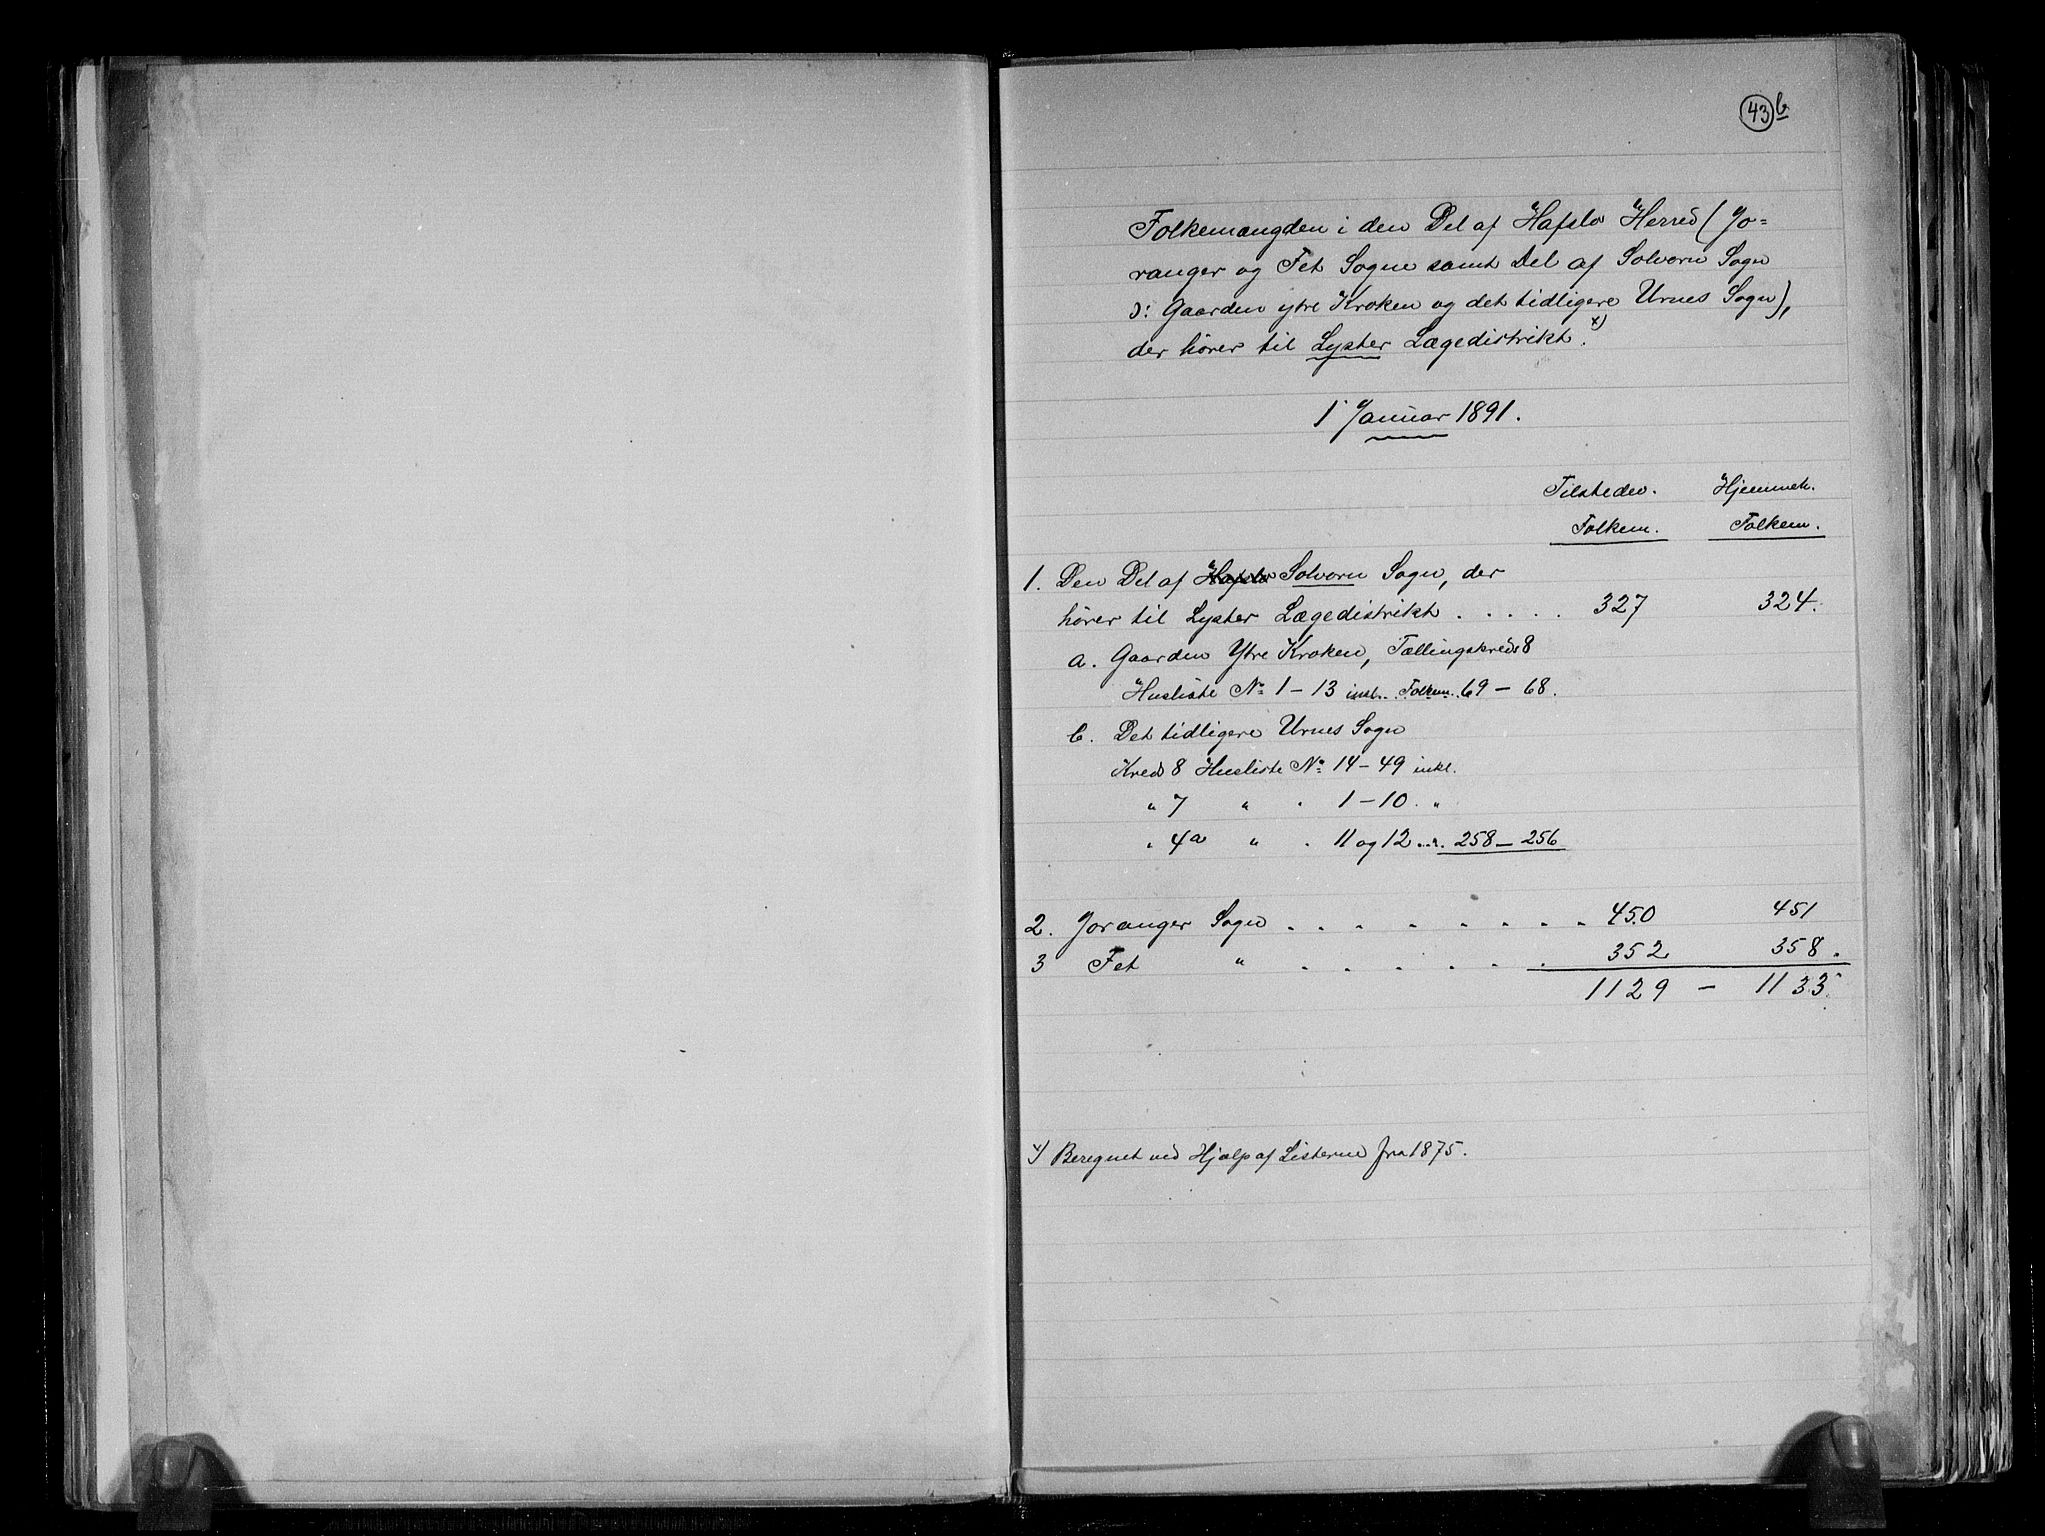 43 b
Folkemængden i den Del af Hafslo Herred (Jo=
ranger og Fet Sogne samt Del af Solvorn Sogn
ɔ: Gaarden ytre Kroken og det tidligere Urnes Sogn),
der hører til Lyster Lægedistrikt. x)
1' Januar 1891.
Tilstedev. Hjemmeh.
Folkem. Folkem.
1. Den Del af Hafslo Solvorn Sogn, der
hører til Lyster Lægedistrikt . . . . . 327 324.
a. Gaarden Ytre Kroken, Tællingskreds 8
Husliste No 1 – 13 inkl. Folkem. 69 – 68.
b. Det tidligere Urnes Sogn
Kreds 8 Husliste No 14 – 49 inkl.
" 7 " " 1 – 10 "
" 4a " " 11 og 12 . . . 258 – 256
2. Joranger Sogn . . . . . . . . . 450 451
3 Fet " . . . . . . . 352 358.
1129 – 1133.
x) Beregnet ved Hjælp af Listerne fra 1875.